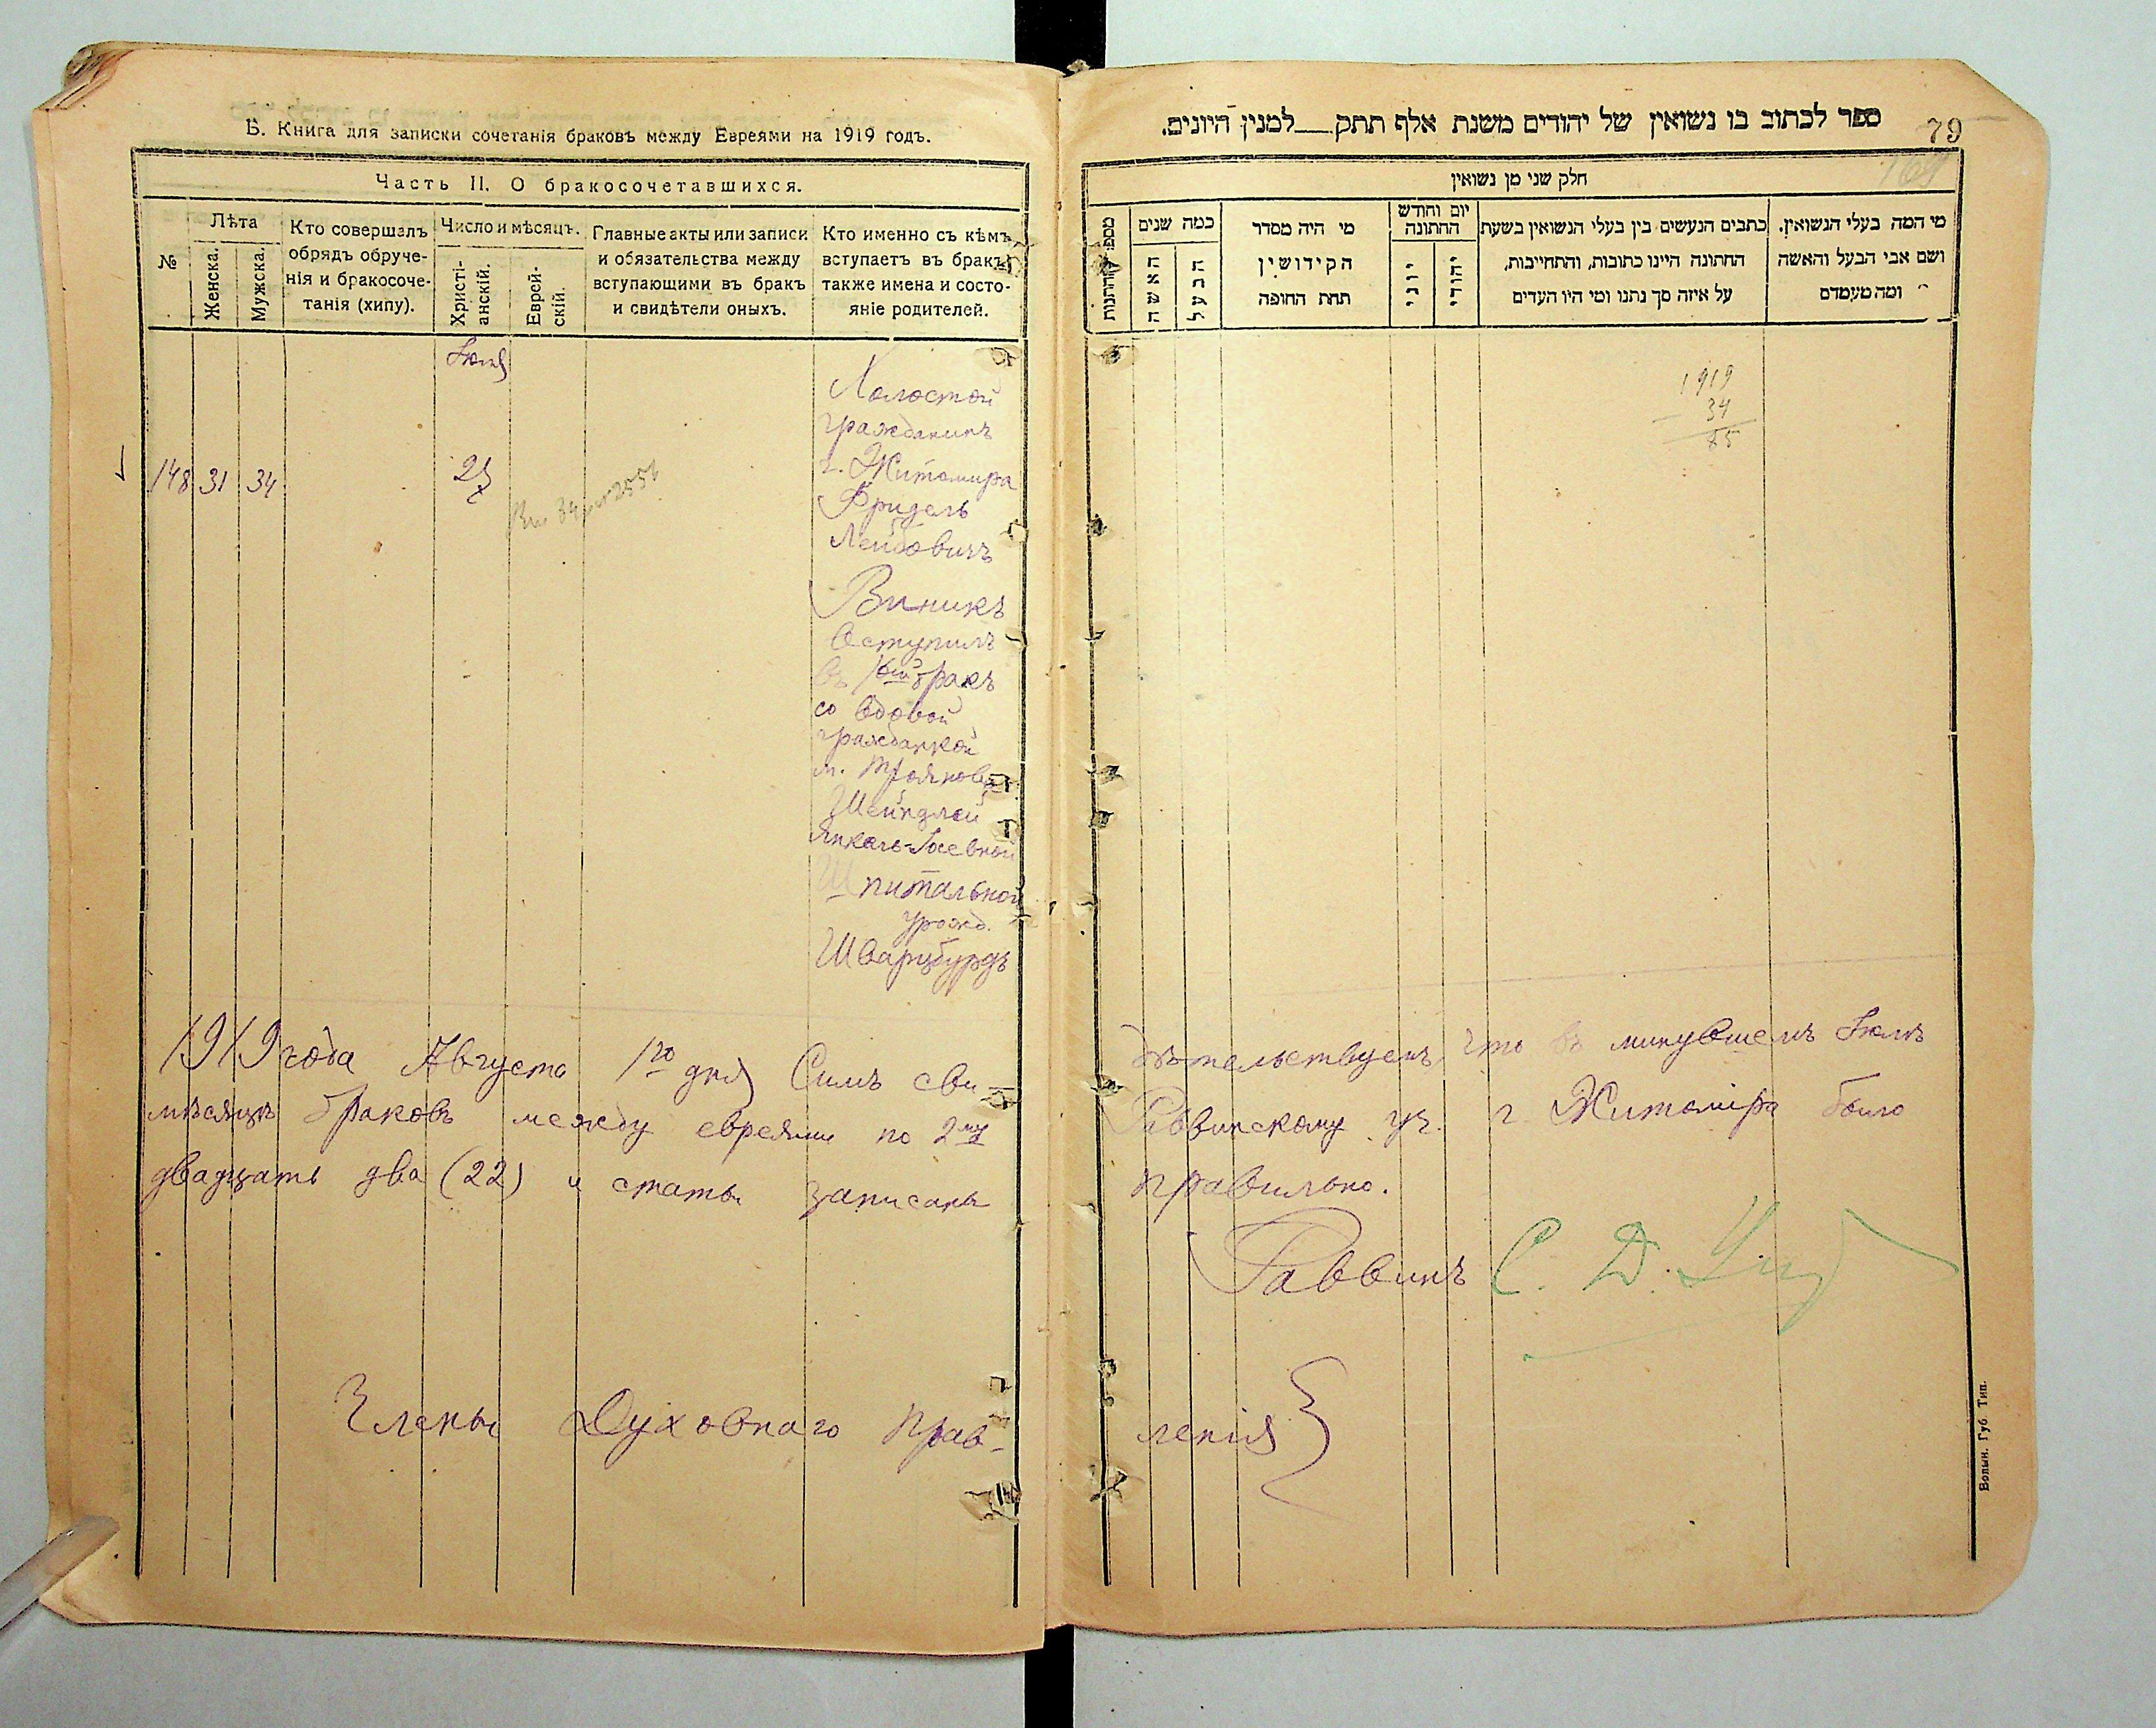 Б. Книга для записки сочетанія браковъ между Евреями на 1919 годъ.
Часть II. О бракосочетавшихся.
№
Лѣта
Женска.
Мужска.
Кто совершалъ
обрядъ обруче-
нія и бракосоче-
танія (хипу).
Число и мѣсяцъ.
Христі-
анскій.
Еврей-
скій.
Главные акты или записи
и обязательства между
вступающими въ бракъ
и свидѣтели оныхъ.
Кто именно съ кѣмъ
вступаетъ въ бракъ,
также имена и состо-
яніе родителей.
Іюля
148 31 34
Холостой
гражданинъ
г. Житомира
Фридель
Лейбовичъ
Виникъ
вступилъ
въ 1ый бракъ
со вдовой
гражданкой
м. Троянова
Шейндлей
Янкель-Іосевной
Шпитальной
урожд.
Шварцбурдъ
1919 года Августа 1го дня Симъ сви-
мѣсяцѣ браковъ между евреями по 2му
двадцать два (22) и статьи записаны
Члены Духовнаго Прав-
ספר לכתוב בו נשואין של יהודים משנת אלף תתק למנין היונים.
79
חלק שני מן נשואין
מי המה בעלי הנשואין.
ושם אבי הבעל והאשה
ומה מעמדם
כתבים הנעשים בין בעלי הנשואין בשעת
החתונה היינו כתובות, והתחייבות,
על איזה סך נתנו ומי היו העדים
יום וחודש
החתונה
יהודי
יוני
מי היה מסדר
הקידושין
תחת החופה
כמה שנים
הבעל
האשה
1919
34
85
дѣтельствуемъ что въ минувшемъ Іюлѣ
Раввинскому уч. г. Житоміра было
правильно.
Раввинъ С. Д.
ленія
Волын. Губ. Тип.